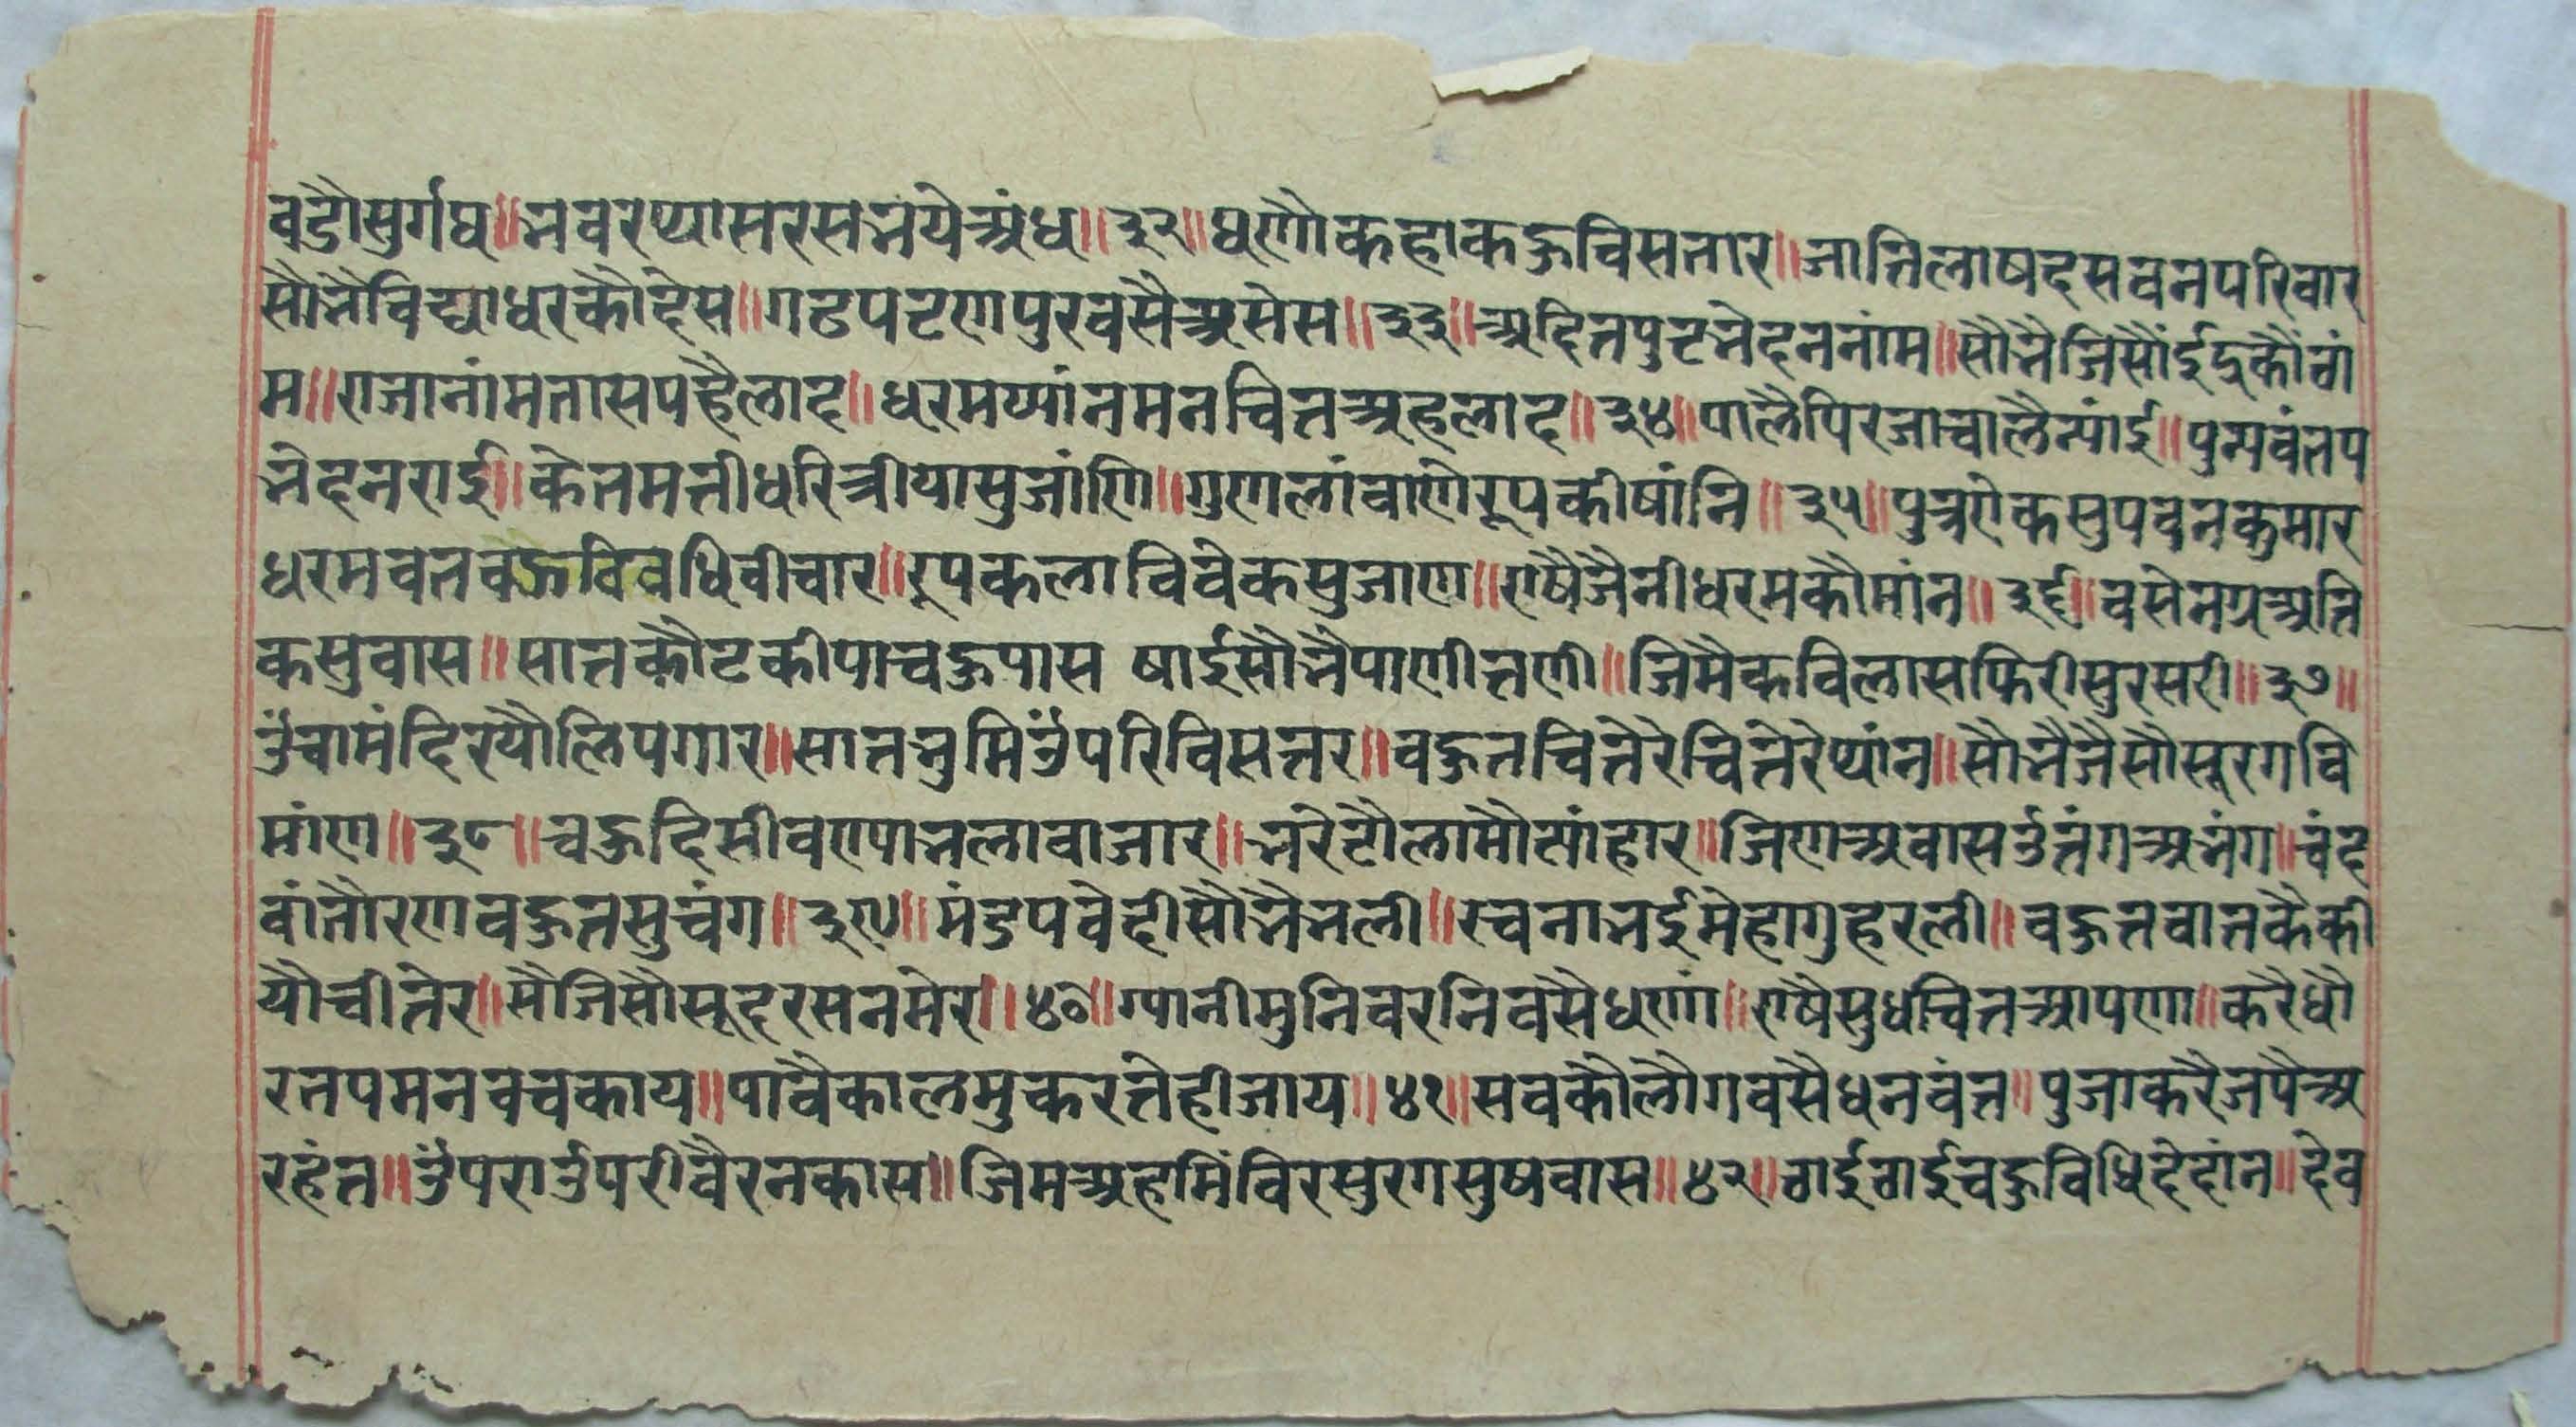 वडौसुर्गध॥नवरप्यासरसनयेअंध॥३२॥घणौकहाकऊविसतार॥जातिलाषदसवनपरिवार
सौनैविद्याधरकौदेस॥गढपटणपुरवसैअसेस॥३३॥अदितपुटनेहननांम॥सौनैजिसौंईदुकौंवां
म॥राजानांमतासपहैलाद॥धरमध्यांनमनचितअहलाद॥३४॥पालैपिरजाचालैन्यांई॥पुन्यवंतप
नेहनराई॥केतमतीधरित्रीयासुजांणि॥गुणलांवाणेरूपकीषांनि॥३५॥पुत्रऐकसुपवनकुमार
धरमवतवऊविवधिवीचार॥रूपकलाविवेकसुजाण॥राषैजैनीधरमकौमांन॥३६॥वसेनग्रअति
कसुवास॥सातकौटकीपाचऊपास षाईसौनैपाणीतणी॥जिमैकविलासफिरीसुरसरी॥३७॥
उंचामंदिरपौलिपगार॥सातनुमिउंपरिविसत्तर॥वऊतचितेरेचितेरेप्यांन॥सौनैजैसौसूरगवि
मांण॥३८॥चऊदिसीवण्यानलावाजार॥नरेटौलामौत्यांहार॥जिणअवासउतंगअनंग॥चंद
वांतौरणवऊतसुचंग॥३९॥मंडपवेदीसौनैनली॥रचनानईमेहागुहरली॥वऊतवातकैकी
यौचीतेर॥सौजिसौसूदरसनमेर॥४०॥ग्यानीमुनिवरनिवसैघणां॥राषैसुधचितआपणा॥करैघौ
रतपमनवचकाय॥पावैकालमुकरतेहीजाय॥४१॥सवकौलौगवसैधनवंत॥पुजाकरैजपैअ
रहंत॥उंपराउपरीवैरनकास॥जिमअहमिंविरसुरगसुषवास॥४२॥ठाईठाईचऊविधिदेदांन॥देव